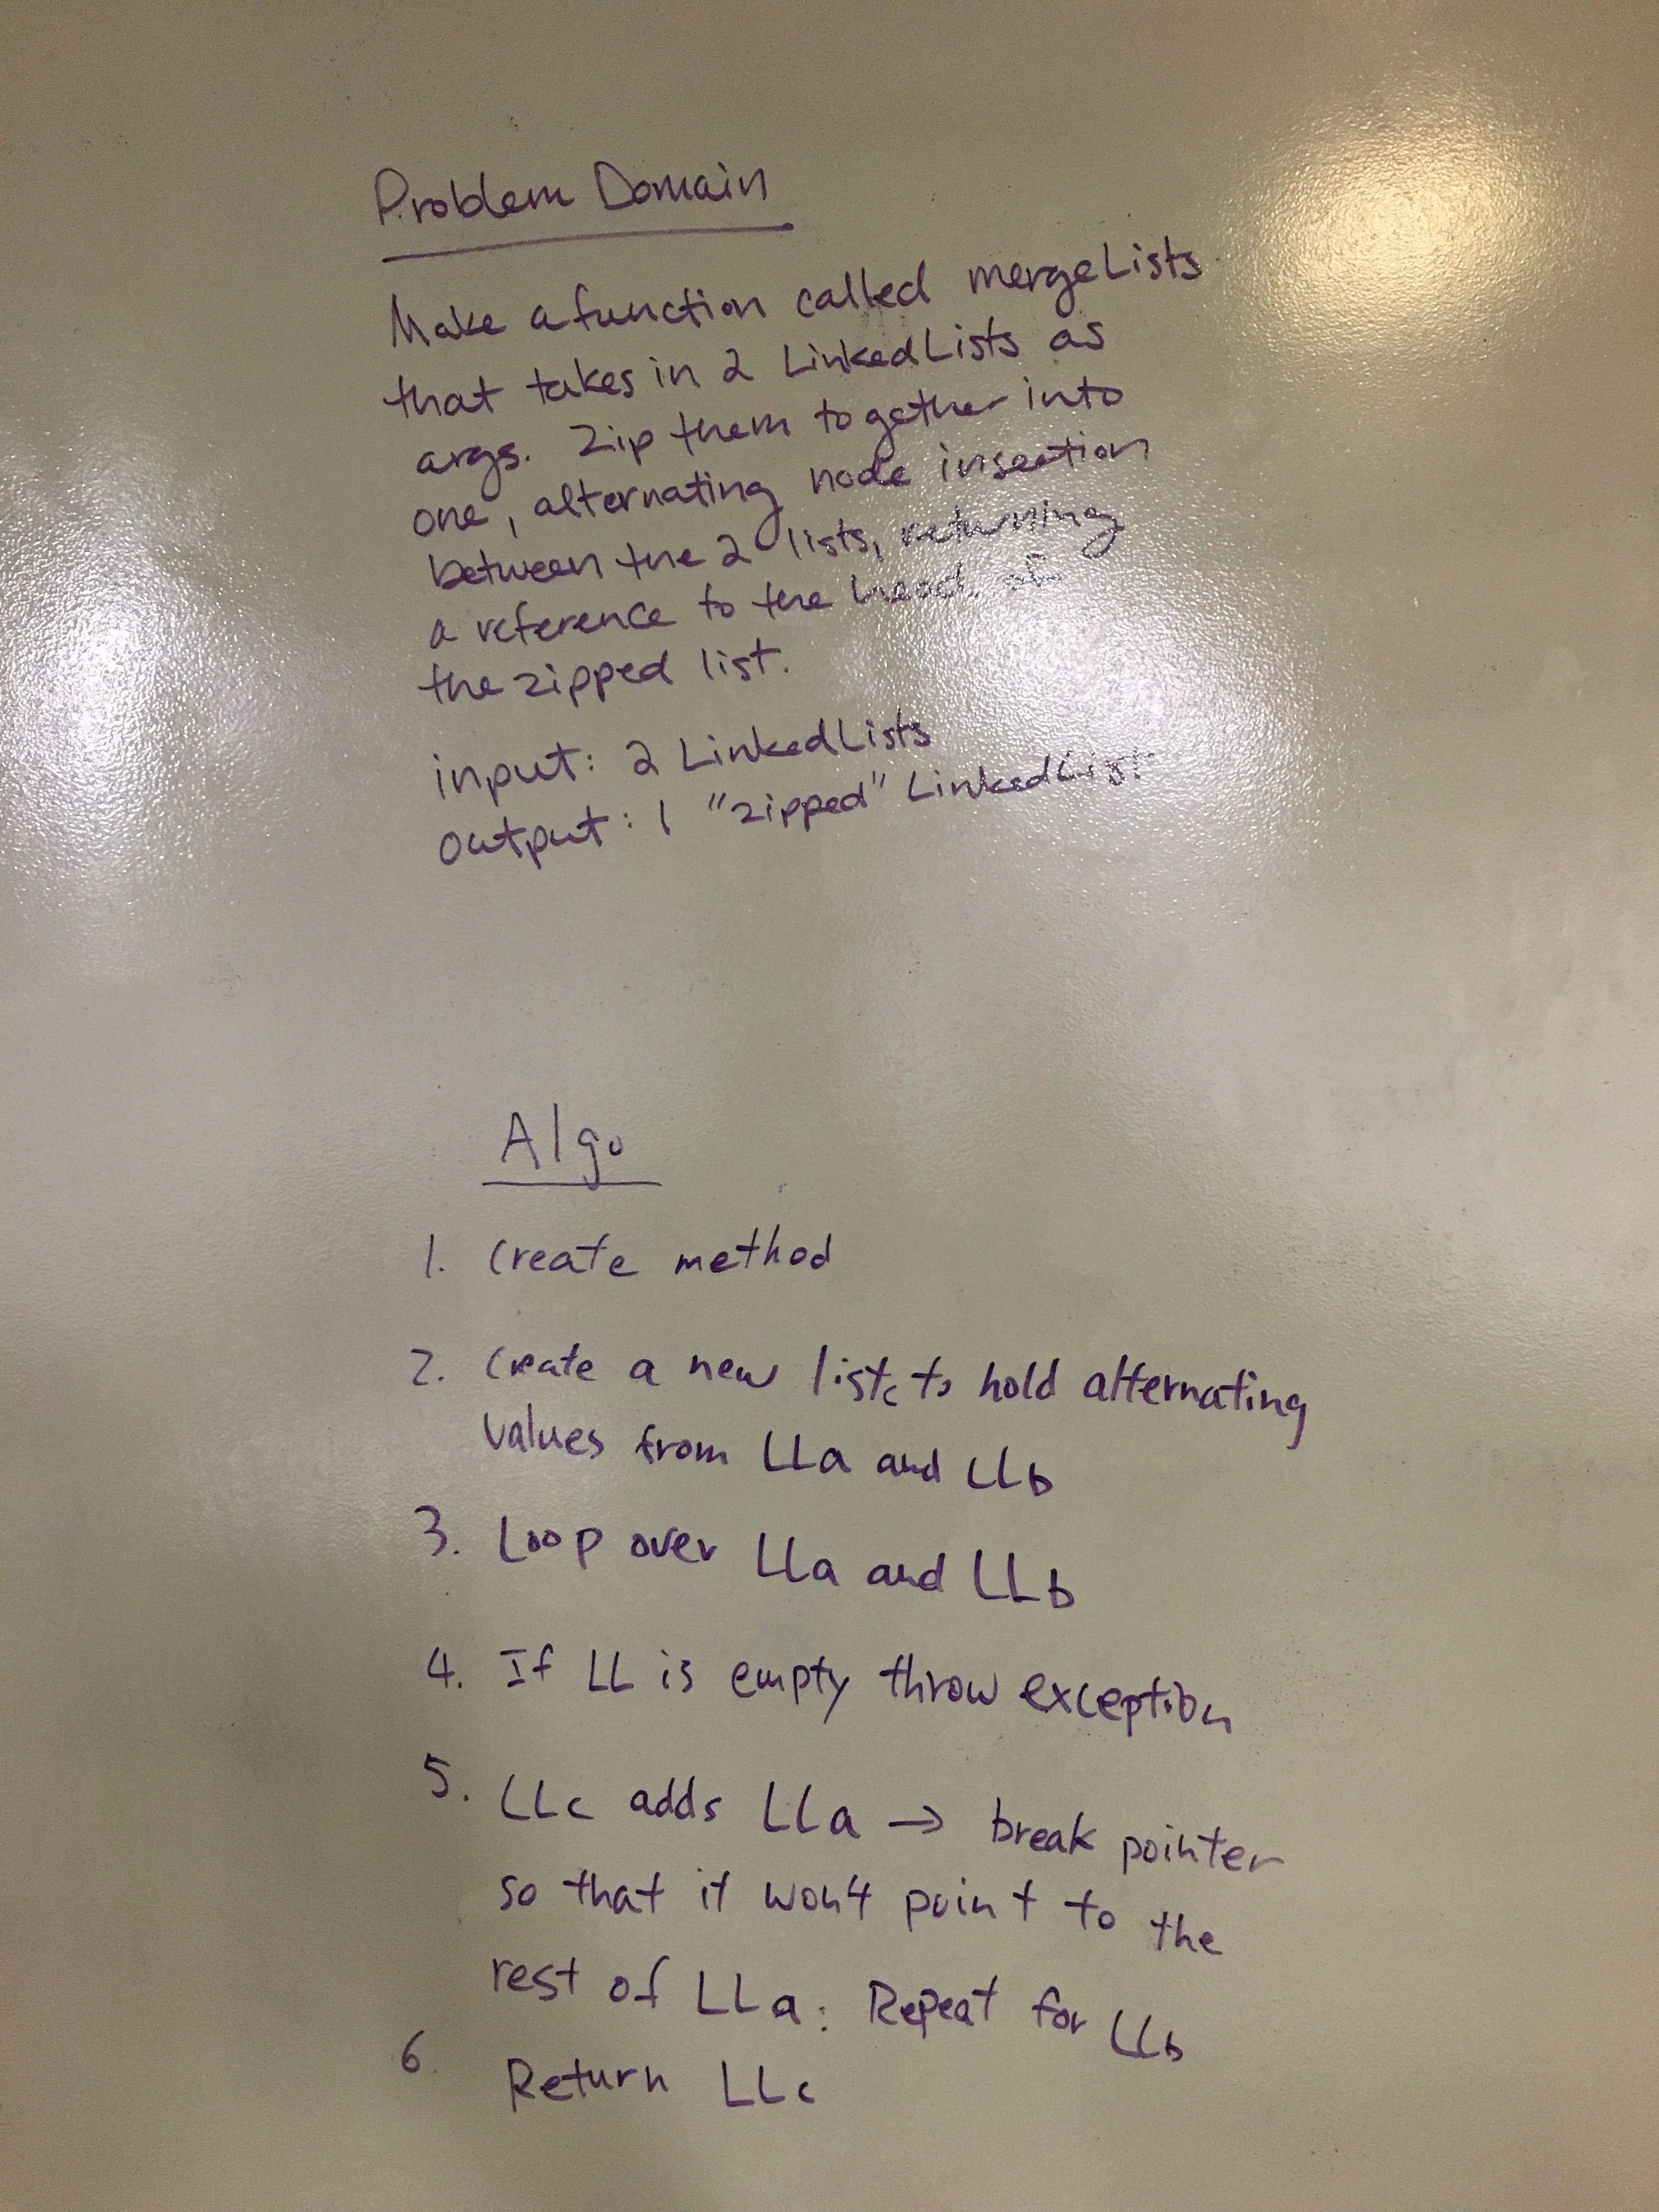 Problem Domain
Make a function called mergeLists
that takes in 2 LinkedLists as
args. Zip them together into
one, alternating node insertion
between the 2 lists, returning
a reference to the head of
the zipped list.
input: 2 LinkedLists
output: 1 "zipped" LinkedList
Algo
1. Create method
2. Create a new listc to hold alternating
values from LLa and LLb
3. Loop over LLa and LLb
4. If LL is empty throw exception
5. LLc adds LLa → break pointer
so that it won't point to the
rest of LLa. Repeat for LLb
6. Return LLc